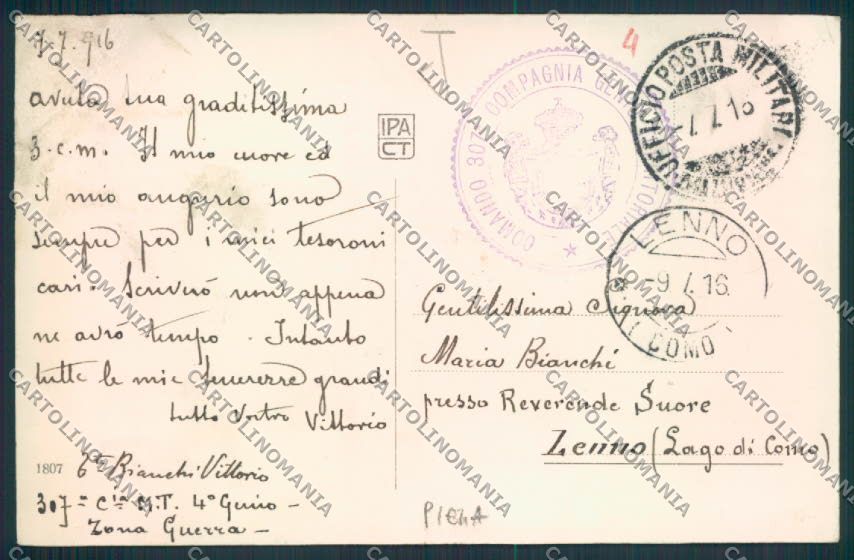 7.7.916
avuta tua graditissima
3.c.m. Il mio cuore ed
il mio augurio sono
sempre per i miei tesoroni
cari. Scriverò non appena
ne avrò tempo. Intanto
tutte le mie tenerezze grandi
tutto vostro Vittorio
1807
Bianchi Vittorio
307ª C.ia M.T. 4º Genio -
Zona Guerra -
T
4
IPA
CT
COMANDO 307 COMPAGNIA
UFFICIO POSTA MILITARE
7.7.16
LENNO
-9.7.16
COMO
Gentilissima Signora
Maria Bianchi
presso Reverende Suore
Lenno (Lago di Como)
PIEGA
CARTOLINOMANIA